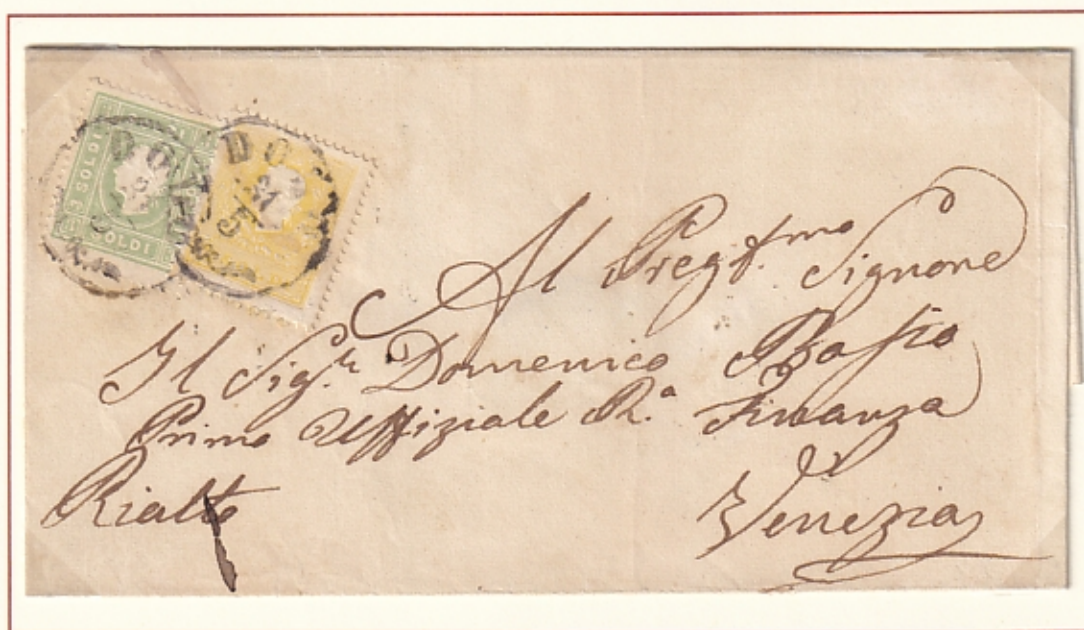 3 SOLDI
SOLDI
DO
DO
21
5
Al Preg.mo Signore
Il Sig.r Domenico
Primo Uffiziale R.a Finanza
Rialto
Venezia